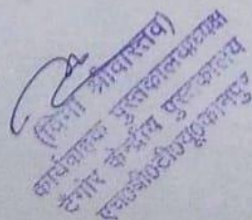 (विनी श्रीवास्तव)
कार्यवाहक पुस्तकालयाध्यक्ष
टैगोर केन्द्रीय पुस्तकालय
एच०बी०टी०यू०कानपुर